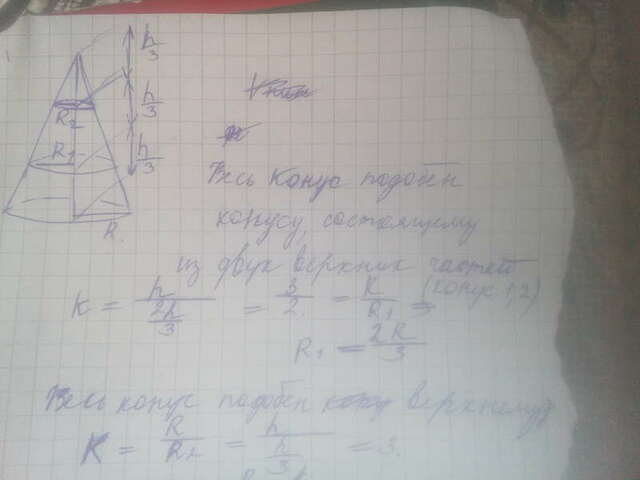 h/3
h/3
R₂
R₁
h/3
R
Весь конус подобен
конусу, состоящему
из двух верхних частей
(конус 1,2)
K = h / (2h/3) = 3/2 = R/R₁ =
R₁ = 2R/3
Весь конус подобен верхнему
K = R/R₂ = h / (h/3) = 3.